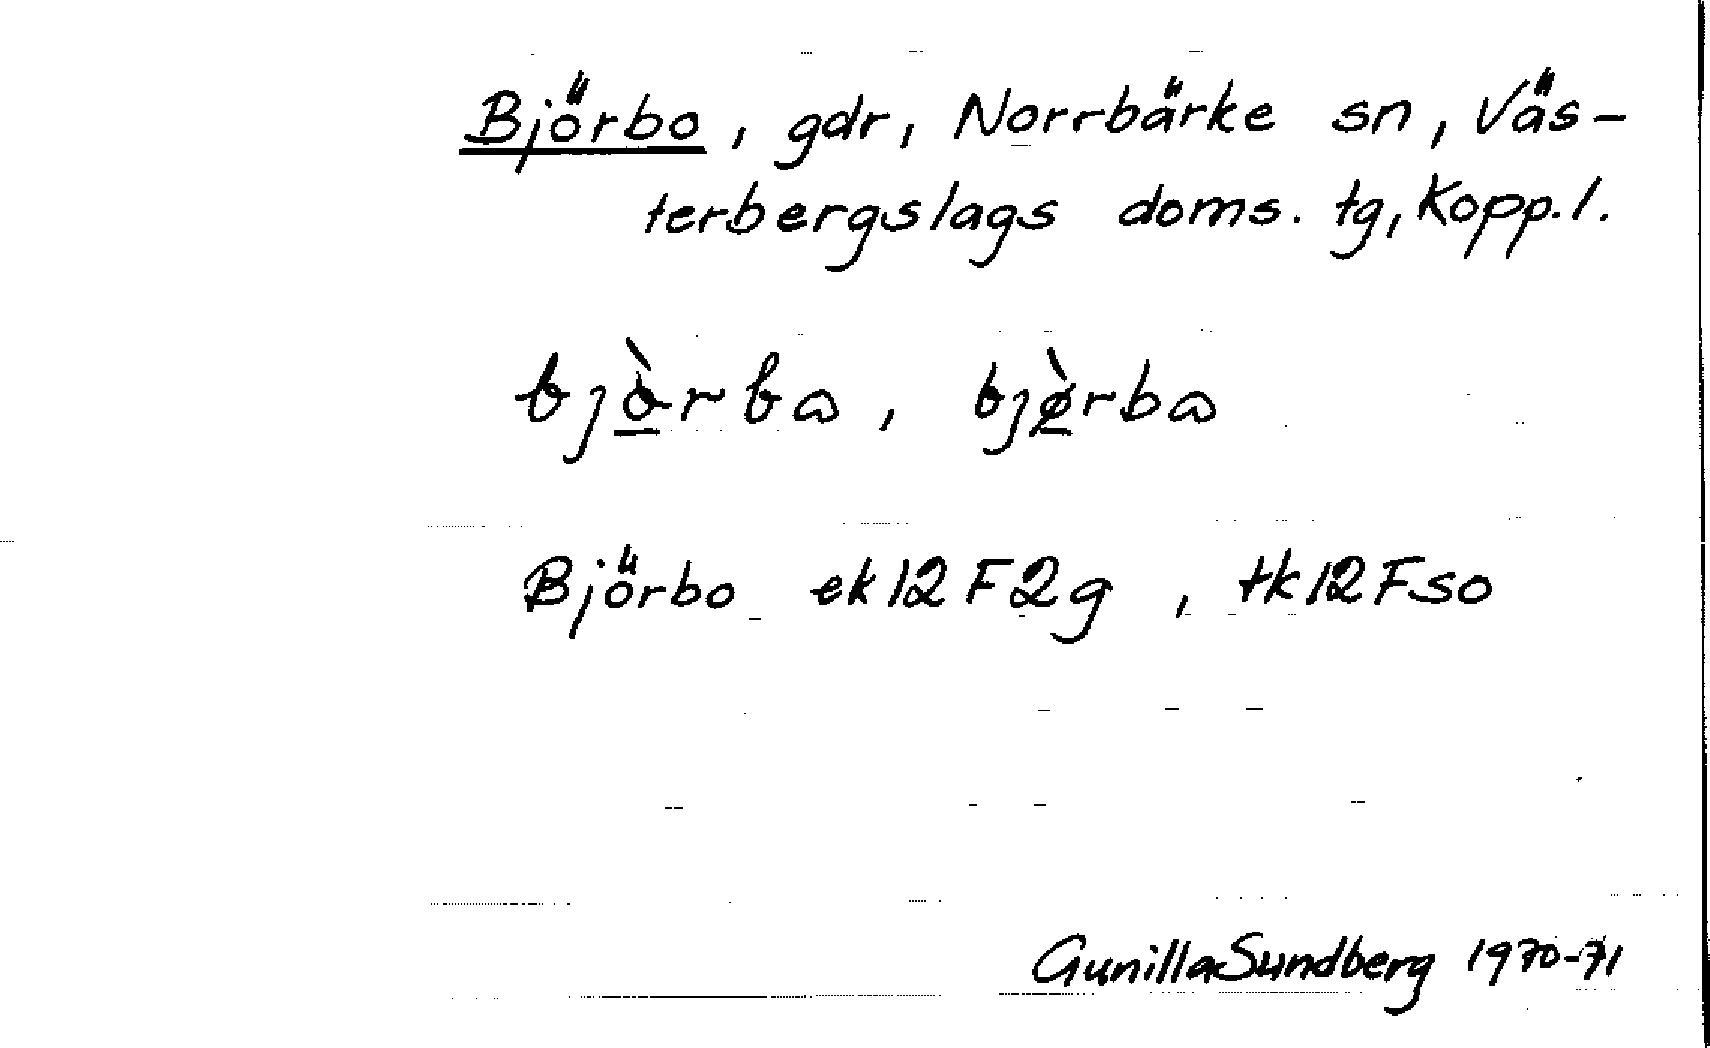 Björbo, gdr, Norrbärke sn, Väs-
terbergslags doms. tg, Kopp. l.
bjò̲rba, bjø̲̀rba
Björbo ek12F2g, tk12Fso
Gunilla Sundberg 1970-71